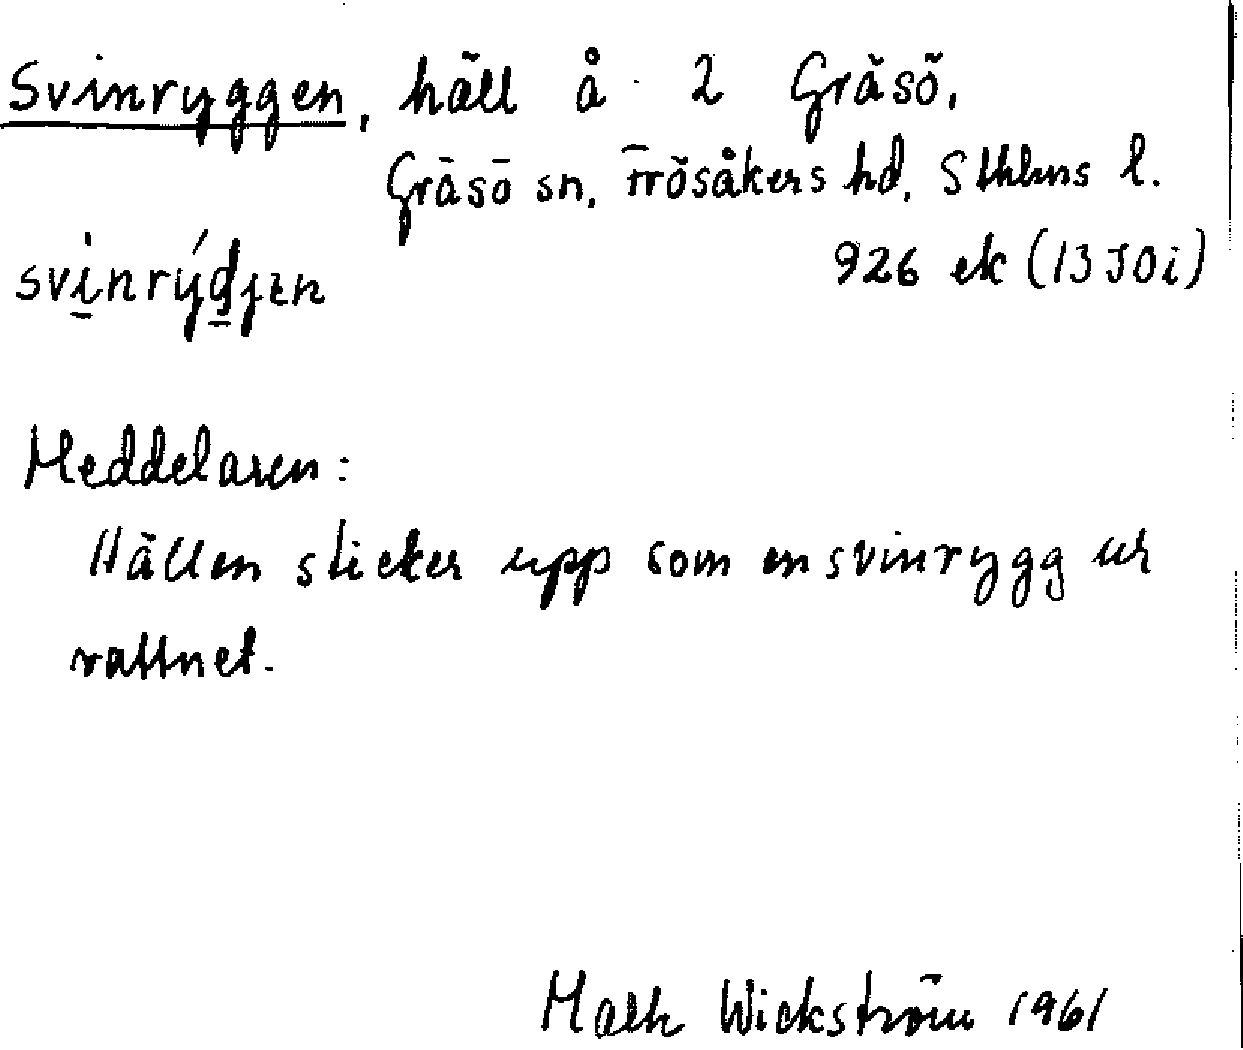 Svinryggen, häll å 2 Gräsö,
Gräsö sn, Frösåkers hd, Sthlms l.
926 ek (13 J 0 i)
svinrýdjen
Meddelaren:
Hällen sticker upp som en svinrygg ur
vattnet.
Wickström 1961